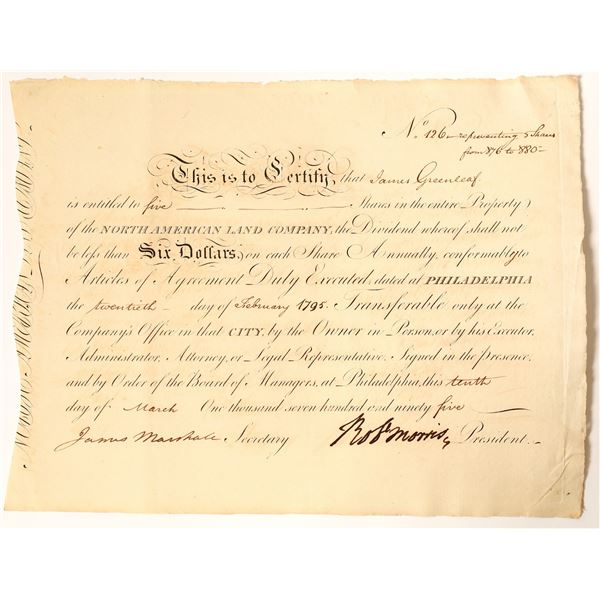 No 126 representing 5 Shares
from 876 to 880
This is to Certify, that James Greenleaf
is entitled to five Shares in the entire Property
of the NORTH AMERICAN LAND COMPANY, the Dividend whereof shall not
be less than Six Dollars, on each Share Annually, conformably to
Articles of Agreement Duly Executed, dated at PHILADELPHIA
the twentieth day of February 1795. Transferable only at the
Company's Office in that CITY, by the Owner in Person, or by his Executor,
Administrator, Attorney, or Legal Representative. Signed in the presence,
and by Order of the Board of Managers, at Philadelphia, this tenth
day of March One thousand seven hundred and ninety five
James Marshall Secretary Robt Morris, President.